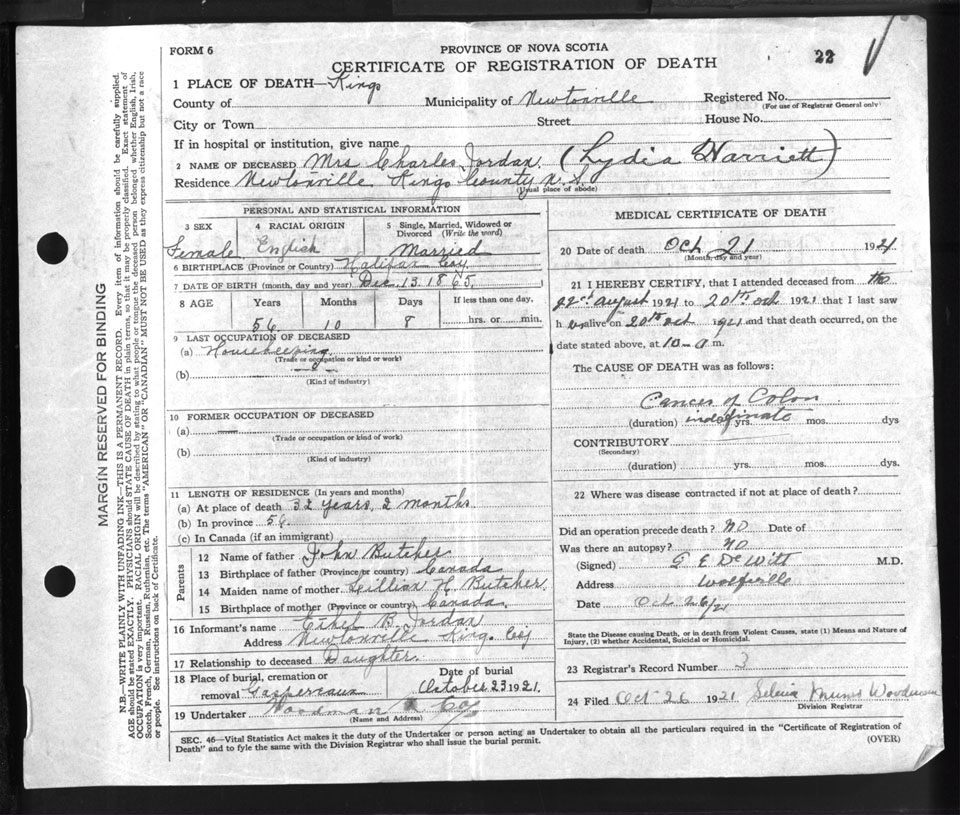 FORM 6
PROVINCE OF NOVA SCOTIA
CERTIFICATE OF REGISTRATION OF DEATH
22
1 PLACE OF DEATH—Kings
County of
Municipality of Newtonville
Registered No.
(For use of Registrar General only)
City or Town
Street
House No.
If in hospital or institution, give name
2 NAME OF DECEASED Mrs Charles Jordan. (Lydia Harriett)
Residence Newtonville Kings County N.S.
(Usual place of abode)
PERSONAL AND STATISTICAL INFORMATION
3 SEX
Female
4 RACIAL ORIGIN
English
5 Single, Married, Widowed or Divorced (Write the word)
Married
6 BIRTHPLACE (Province or Country) Halifax Coy.
7 DATE OF BIRTH (month, day and year) Dec. 13. 1865.
8 AGE
Years
Months
Days
If less than one day,
56
10
8
hrs. or min.
9 LAST OCCUPATION OF DECEASED
(a) Housekeeping
(Trade or occupation or kind or work)
(b)
(Kind of industry)
10 FORMER OCCUPATION OF DECEASED
(a) —
(Trade or occupation or kind of work)
(b)
(Kind of industry)
11 LENGTH OF RESIDENCE (In years and months)
(a) At place of death 32 years, 2 months.
(b) In province 56.
(c) In Canada (if an immigrant)
Parents
12 Name of father John Butcher
13 Birthplace of father (Province or country) Canada
14 Maiden name of mother Lillian H. Butcher.
15 Birthplace of mother (Province or country) Canada.
16 Informant's name Ethel B. Jordan
Address Newtonville Kings Coy
17 Relationship to deceased Daughter.
18 Place of burial, cremation or
removal Gaspereaux
Date of burial
October 23 1921.
19 Undertaker Woodman & Coy.
(Name and Address)
MEDICAL CERTIFICATE OF DEATH
20 Date of death Oct 21 1921
(Month, day and year)
21 I HEREBY CERTIFY, that I attended deceased from the
22nd August 1921 to 20th oct 1921 that I last saw
her alive on 20th oct 1921 and that death occurred, on the
date stated above, at 10-a m.
The CAUSE OF DEATH was as follows:
Cancer of Colon
(duration) indefinate yrs. mos. dys
CONTRIBUTORY
(Secondary)
(duration) yrs. mos. dys.
22 Where was disease contracted if not at place of death?
Did an operation precede death? NO Date of
Was there an autopsy? NO
(Signed) G E DeWitt M.D.
Address Wolfville
Date Oct 26/21
State the Disease causing Death, or in death from Violent Causes, state (1) Means and Nature of
Injury, (2) whether Accidental, Suicidal or Homicidal.
23 Registrar's Record Number 3
24 Filed Oct 26 1921
Division Registrar
SEC. 46—Vital Statistics Act makes it the duty of the Undertaker or person acting as Undertaker to obtain all the particulars required in the "Certificate of Registration of
Death" and to fyle the same with the Division Registrar who shall issue the burial permit.
(OVER)
MARGIN RESERVED FOR BINDING
N.B.—WRITE PLAINLY WITH UNFADING INK—THIS IS A PERMANENT RECORD. Every item of information should be carefully supplied.
AGE should be stated EXACTLY. PHYSICIANS should STATE CAUSE OF DEATH in plain terms, so that it may be properly classified. Exact statement of
OCCUPATION is very important. RACIAL ORIGIN will be described by stating to what people or tongue the deceased person belonged whether English, Irish,
Scotch, French, German, Russian, Ruthenian, etc. The terms "AMERICAN" OR "CANADIAN" MUST NOT BE USED as they express citizenship but not a race
or people. See instructions on back of Certificate.